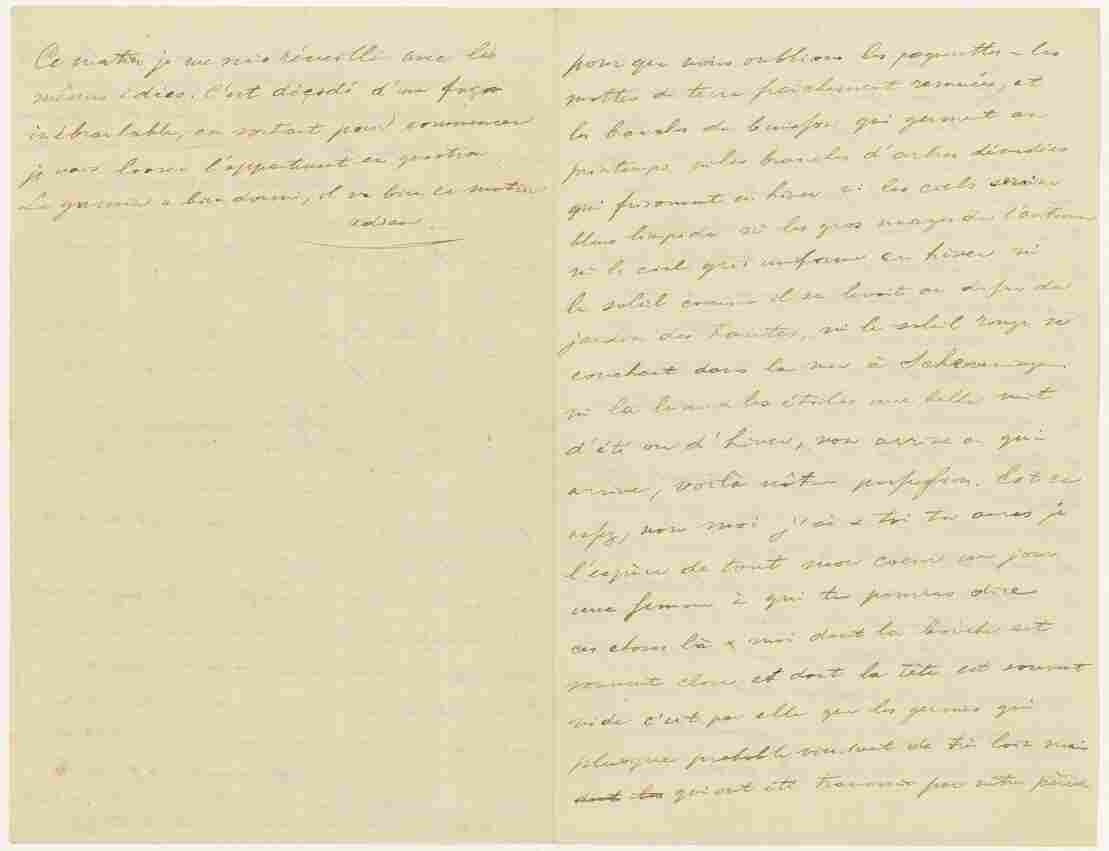 Ce matin je me suis réveillé avec les
mêmes idées. C'est décidé d'une façon
inébranlable, en sortant pour commencer
je vais louer l'appartement en question
Le gamin a bien dormi, il va bien ce matin
adieu.
pour que nous oublions les paquerettes & les
mottes de terre fraichement remuées, et
les branches de buisson qui germent au
printemps, ni les branches d'arbre dénudées
qui frisonnent en hiver ni les ciels sereins
bleus limpide ni les gros nuages de l'automne
ni le ciel gris uniforme en hiver ni
le soleil comme il se levait au dessus du
jardin des tantes, ni le soleil rouge se
couchant dans la mer à Scheveningen.
ni la lune & les étoiles une belle nuit
d'été ou d'hiver, non arrive ce qui
arrive, voilà nôtre profession. Est ce
assez, non moi j'ai & toi tu auras je
l'espère de tout mon coeur un jour
une femme à qui tu pourras dire
ces choses là & moi dont la bouche est
souvent close et dont la tête est souvent
vide c'est par elle que les germes qui
plusque probable viennent de très loin mais
dont les qui ont été trouvés par nôtre père